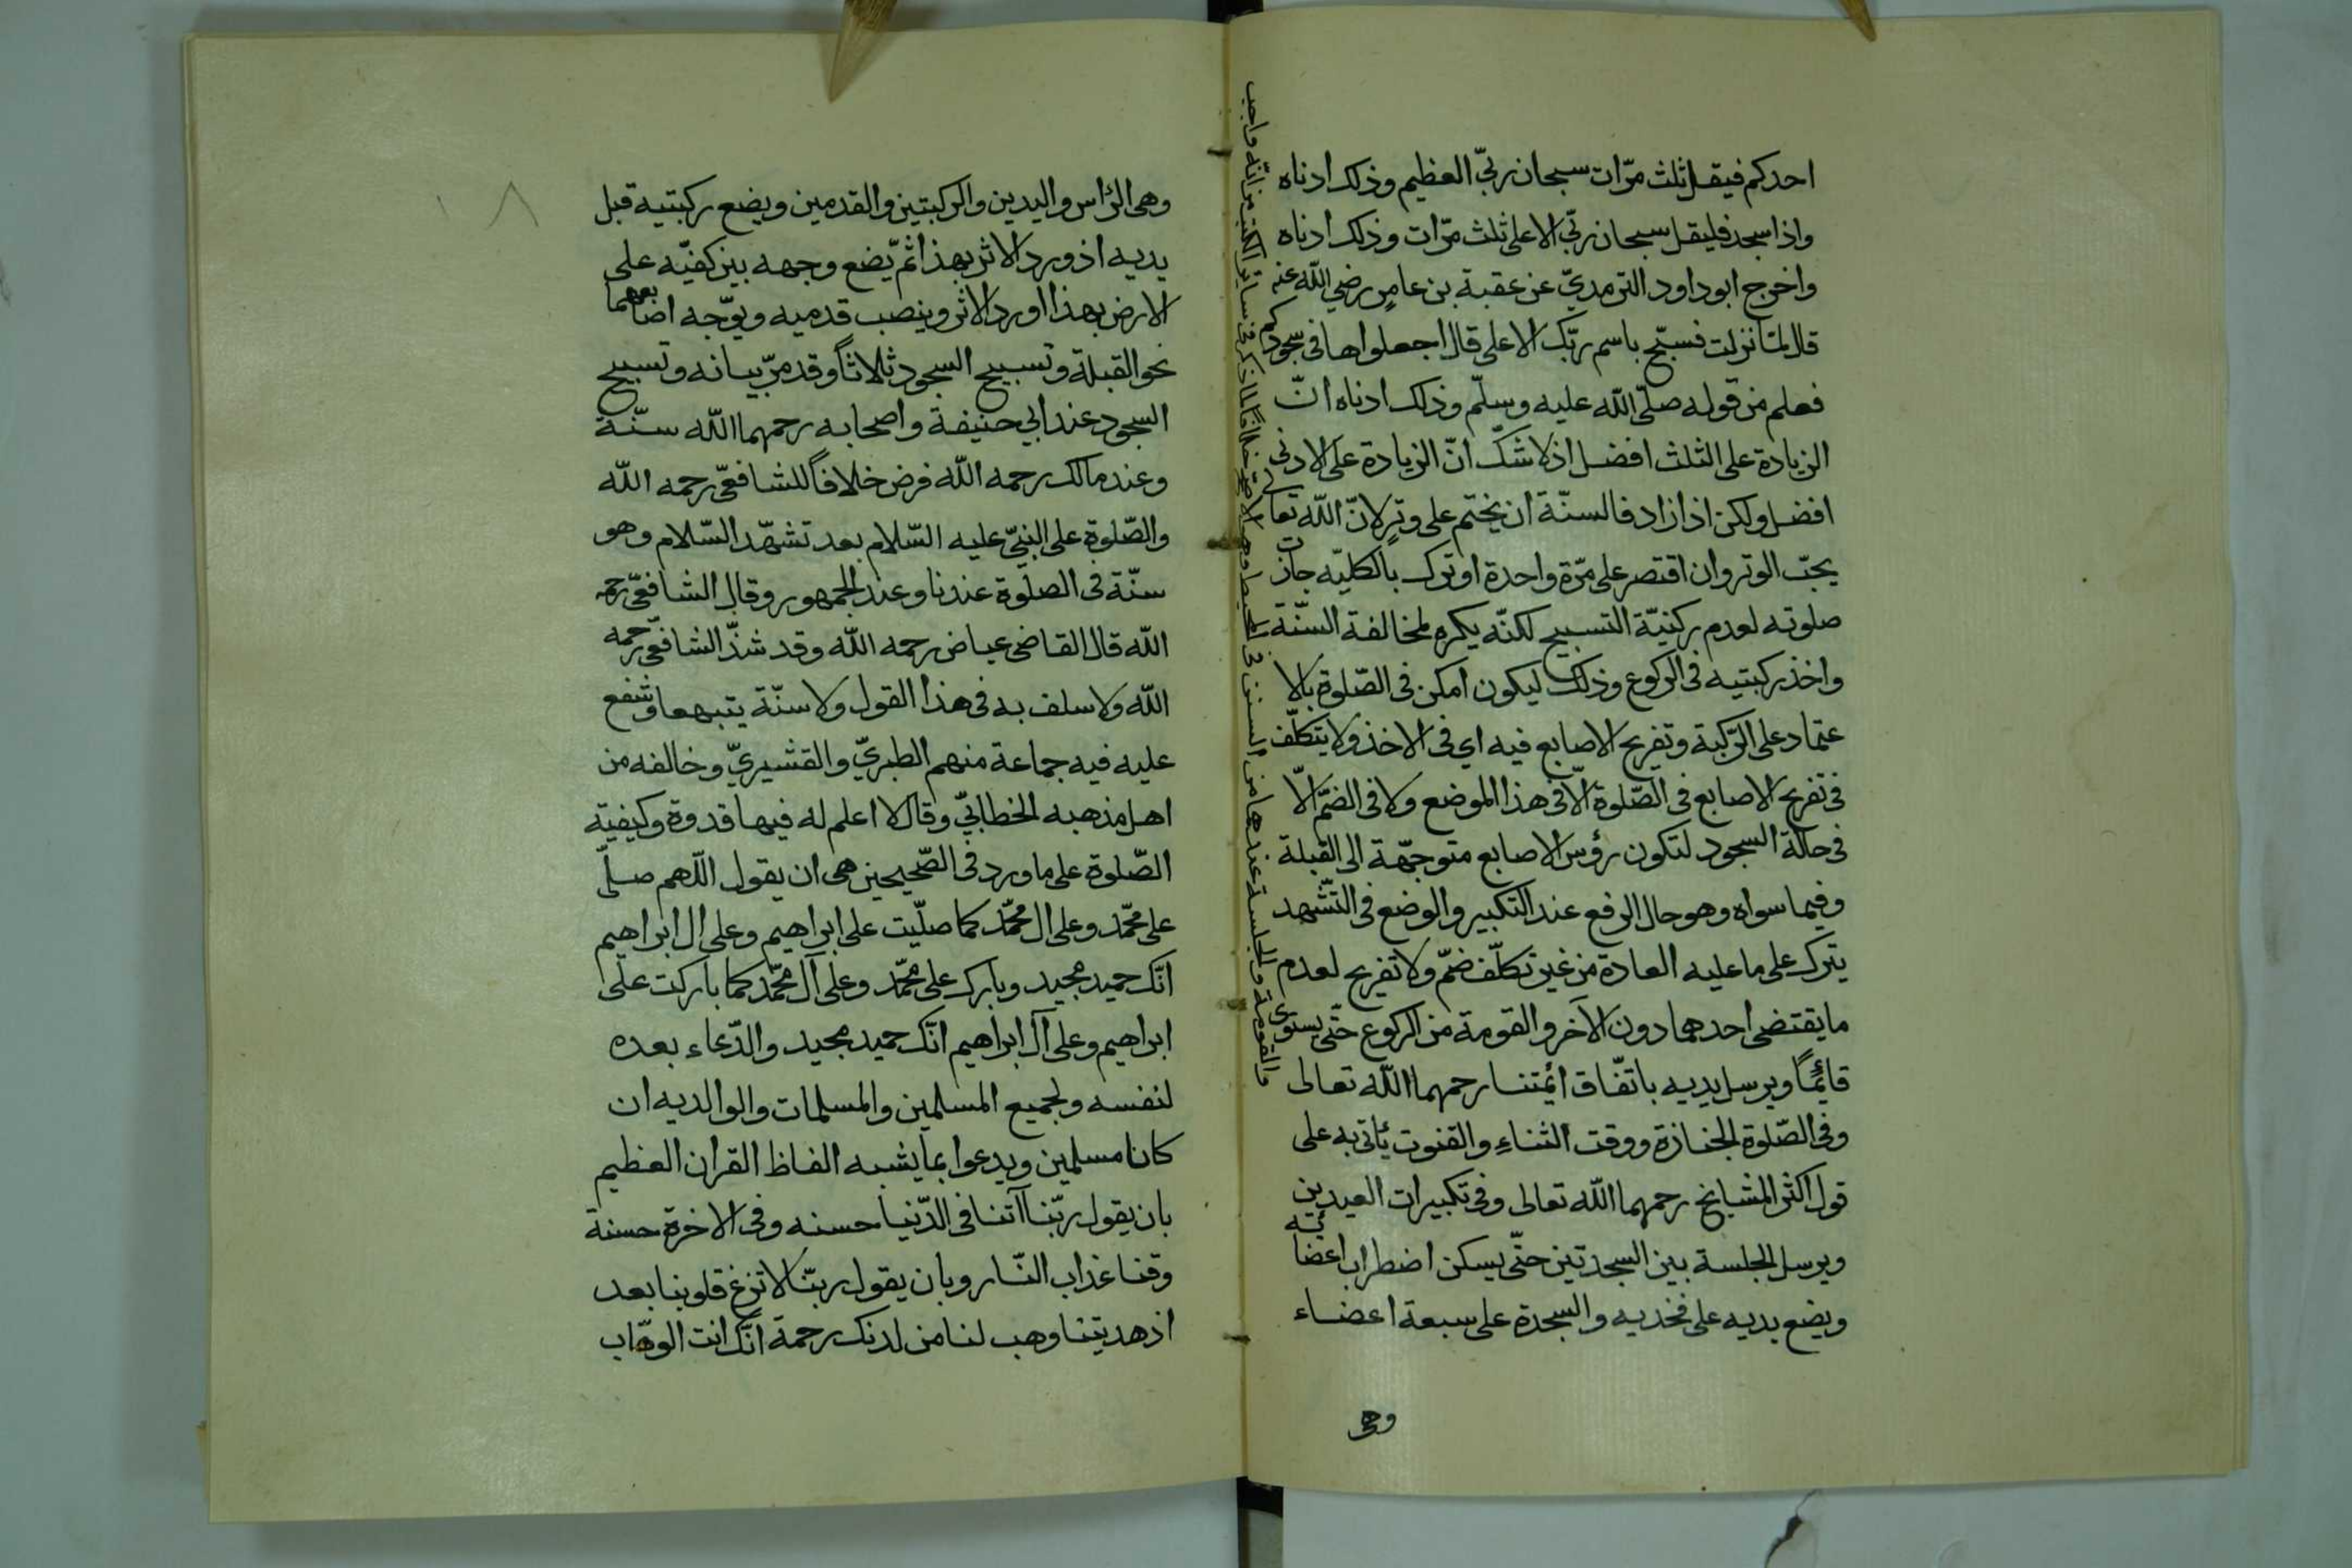 احدكم فيقل ثلث مرّات سبحان ربّي العظيم وذلك ادناه
واذا سجد فليقل سبحان ربّي الاعلى ثلث مرّات وذلك ادناه
واخرج ابوداود الترمديّ عن عقبة بن عامرٍ رضي اللّه عنه
قال لمّا نزلت فسبّح باسم ربّك الاعلى قال اجعلواها فى سجودكم
فعلم من قوله صلّى اللّه عليه وسلّم وذلك ادناه انّ
الزيادة على الثلث افضل اذ لا شكّ انّ الزيادة على الادنى
افضل ولكن اذا زاد فالسنّة ان يختم على وترٍ لانّ اللّه تعالى
يحبّ الوتر وان اقتصر على مرّة واحدة او ترك بالكليّه جازت
صلوته لعدم ركنيّة التسبيح لكنّه يكره لمخالفة السنّة
واخذ ركبتيه فى الركوع وذلك ليكون امكن فى الصّلوة بالا
عتماد على الرّكبة وتفريح الاصابع فيه اي فى الاخذ ولا يتكلّف
فى تفريح الاصابع فى الصّلوة الّا فى هذا الموضع ولا فى الضمّ الّا
فى حالة السجود لتكون رؤس الاصابع متوجّهة الى القبلة
وفيما سواه وهو حال الرفع عند التكبير والوضع فى التّشهد
يترك على ما عليه العادة من غير تكلّف ضمّ ولا تفريح لعدم
ما يقتضى احدهما دون الآخر والقومة من الركوع حتّى يستوى
قائمًا ويرسل يديه باتفّاق ائمتنا رحمهما اللّه تعالى
وفى الصّلوة الجنازة ووقت الثناءِ والقنوت ياتى به على
قول اكثر المشايخ رحمهما اللّه تعالى وفى تكبيرات العيدين
ويرسل الجلسة بين السجدتين حتّى يسكن اضطراب اعضائه
ويضع يديه على فخديه والسجدة على سبعة اعضاء
وهى
والقومة والجلسة عندهما من السنن فى المحيط وهو الاصحّ خلافًا لما ذكر فى سائر الكتب من انّه واجب
وهى الرّاس واليدين والركبتين والقدمين ويضع ركبتيه قبل
يديه اذ ورد الاثر بهذا ثم يّضع وجهه بين كفيّه على
الارض بهذا اورد الاثر وينصب قدميه ويوّجه اصابعهما
نحو القبلة وتسبيح السجود ثلاثاً وقد مرّ بيانه وتسبيح
السجود عند ابي حنيفة واصحابه رحمهما اللّه سنّة
وعند مالك رحمه اللّه فرض خلافاً للشافعّى رحمه اللّه
والصّلوة على النبىّ عليه السّلام بعد تشهّد السّلام وهو
سنّة فى الصلوة عندنا وعند الجمهور وقال الشافعّى رحمه
اللّه قال القاضى عياض رحمه اللّه وقد شذّ الشافعّى رحمه
اللّه ولا سلف به فى هذا القول ولا سنّة يتبهعا وشفع
عليه فيه جماعة منهم الطبريّ والقشيريّ وخالفه من
اهل مذهبه الخطابّي وقال لا اعلم له فيها قدوة وكيفيّة
الصّلوة على ما ورد فى الصّحيحين هى ان يقول اللّهم صلّى
على محّمد وعلى ال محمّد كما صلّيت على ابراهيم وعلى ال ابراهيم
انّك حميد مجيد وبارك على محمّد وعلى آل محّمد كما باركت على
ابراهيم وعلى آل ابراهيم انّك حميد مجيد والدّعاء بعده
لنفسه ولجميع المسلمين والمسلمات والوالديه ان
كانا مسلمين ويدعوا بما يشبه الفاظ القران العظيم
بان يقول ربّنا آتنا فى الدّنيا حسنه وفى الاخرة حسنة
وقنا عذاب النّار وبان يقول ربنّا لا تزغ قلوبنا بعد
اذ هديتنا وهب لنا من لدنك رحمة انّك انت الوهّاب
٨